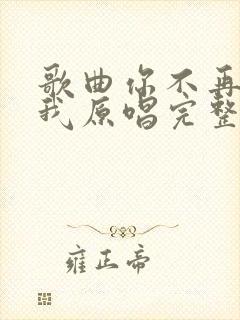 歌曲你不再
我原唱完整
雍正帝